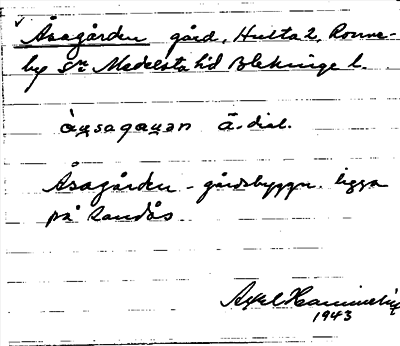 Åsagården gård, Hulta 2, Ronne-
by sn Medelsta hd Blekinge l.
àu̯sagau̯ən ä. dial.
Åsagården - gårdsbyggn. ligga
på sandås.
Axel
1943